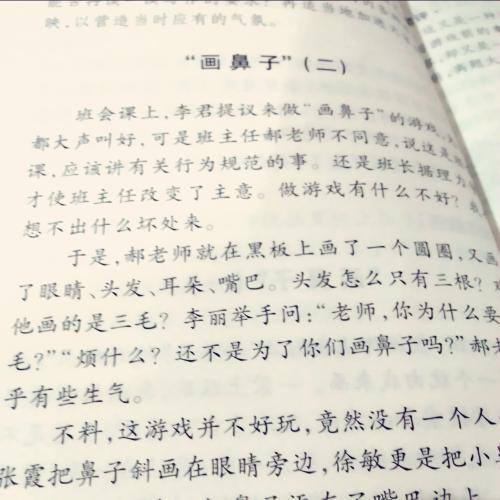 映，以营造当时应有的气氛。
“画鼻子”（二）
班会课上，李君提议来做“画鼻子”的游戏，
都大声叫好，可是班主任郝老师不同意，说这是
课，应该讲有关行为规范的事。还是班长据理力
才使班主任改变了主意。做游戏有什么不好？
想不出什么坏处来。
于是，郝老师就在黑板上画了一个圆圈，又画
了眼睛、头发、耳朵、嘴巴。头发怎么只有三根？
他画的是三毛？李丽举手问：“老师，你为什么要
毛？”“烦什么？还不是为了你们画鼻子吗？”郝老
乎有些生气。
不料，这游戏并不好玩，竟然没有一个人
张霞把鼻子斜画在眼睛旁边，徐敏更是把小鼻